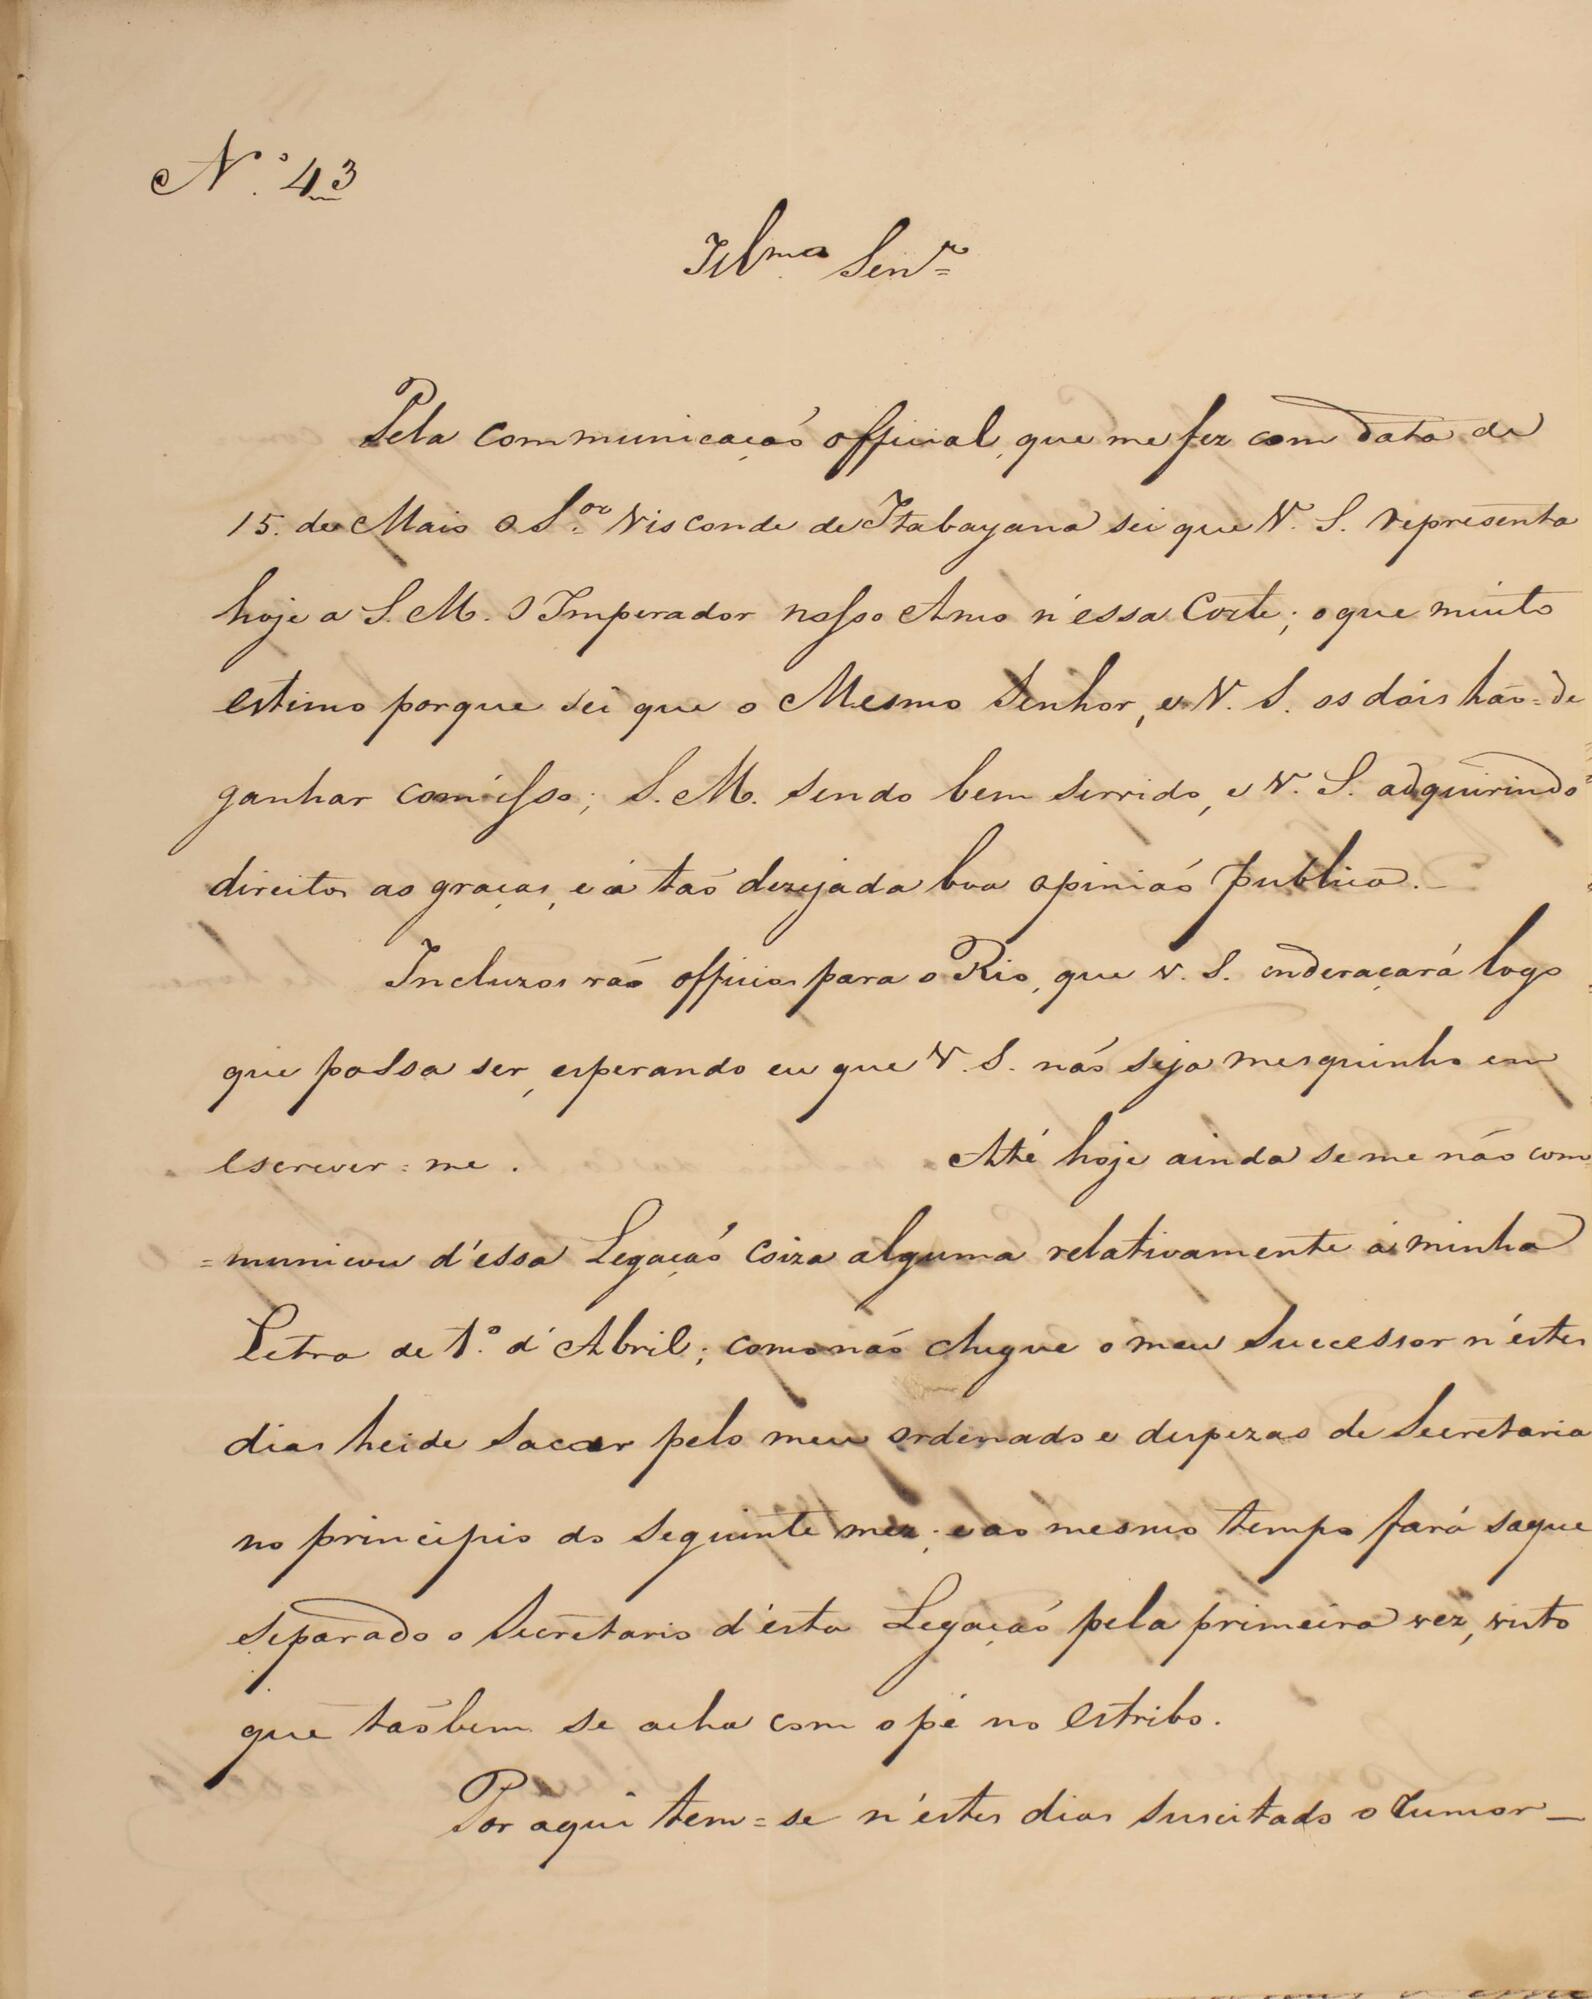 N.º 43
Illmo Senr
Pela communicação official, que me fez com data de
15. de Maio o S.or Visconde de Itabayana sei que V. S. representa
hoje a S. M. O Imperador nosso Amo n'essa Corte; o que muito
estimo porque sei que o Mesmo Senhor, e V. S. os dois hão=de
ganhar com isso; S. M. sendo bem servido, e V. S. adquirindo
direitos as graças, e á taõ dezejada boa opiniaõ publica.
Incluzos vaõ officios para o Rio, que V. S. enderaçará logo
que possa ser, esperando eu que V. S. naõ seja mesquinho em
escrever=me. Até hoje ainda se me não com
=municou d'essa Legaçaõ coiza alguma relativamente á minha
Letra de 1.º d'Abril; como naõ chegue o meu Successor n'estes
dias heide sacar pelo meu ordenado e despezas de Secretaria
no principio do seguinte mez; e ao mesmo tempo fará saque
separado o Secretario d'esta Legaçaõ pela primeira vez, visto
que taõbem se acha com o pé no estribo.
Por aqui tem=se n'estes dias suscitado o rumor